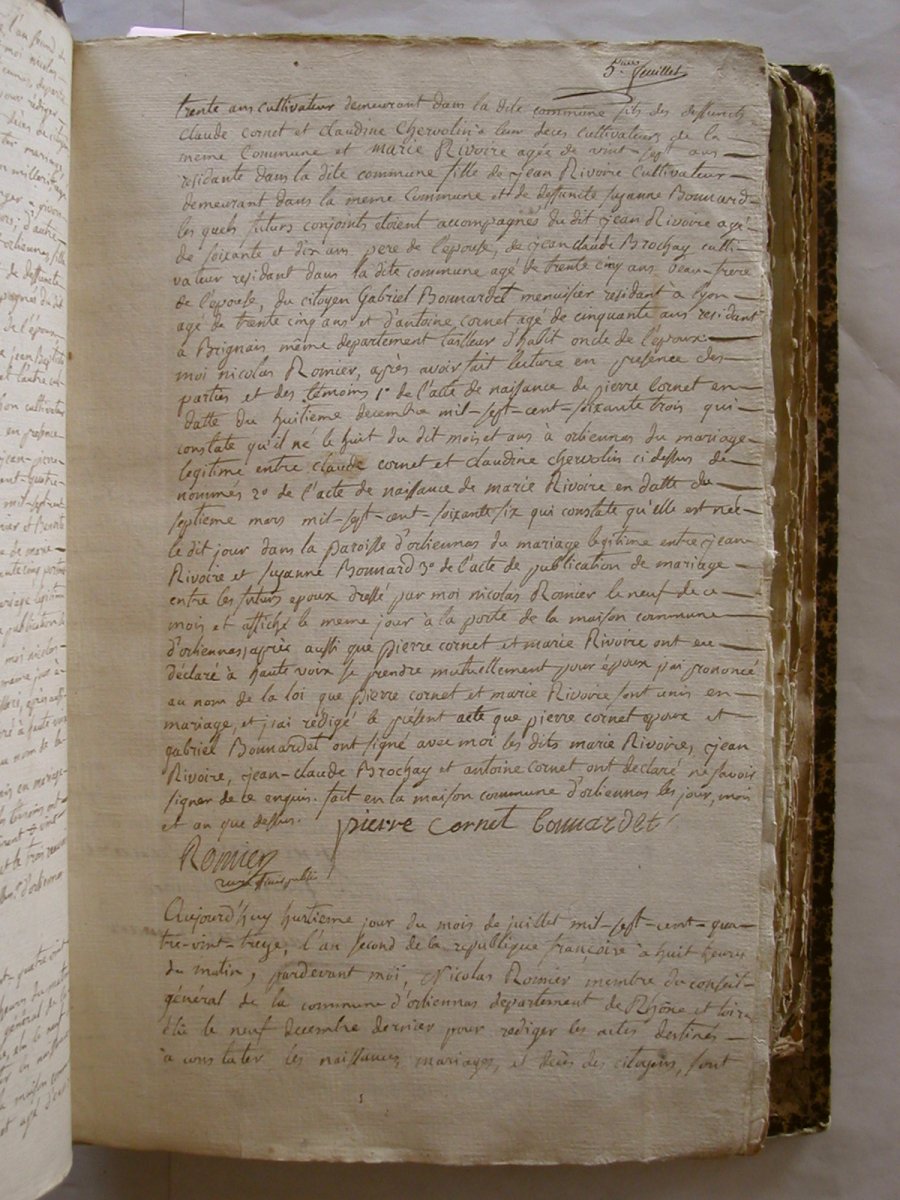 5.me feuillet
trente ans cultivateur demeurant dans la dite commune fils des deffunts
claude cornet et claudine Chervolin a leur deces cultivateurs de la
meme Commune et marie Rivoire agée de vint-sept ans
residante dans la dite commune fille de jean Rivoire Cultivateur
demeurant dans la meme Commune et de deffunte suzanne Bonnard
les quels futurs conjoints étoient accompagnés du dit jean Rivoire agé
de soixante et dix ans pere de l'épouse, de jean claude Brochay culti-
vateur residant dans la dite commune agé de trente cinq ans beau-frere
de l'épouse, du citoyen Gabriel Bonnardet menuisier residant à lyon
agé de trente cinq ans et d'antoine cornet agé de cinquante ans residant
a Brignais même departement tailleur d'habit oncle de l'époux
moi nicolas Romier, après avoir fait lecture en présence des
parties et des témoins 1° de l'acte de naissance de pierre Cornet en
datte du huitieme decembre mil-sept-cent-soixante trois qui
constate qu'il né le huit du dit mois et ans à orliennas du mariage
legitime entre claude cornet et claudine chervolin ci dessus de-
nommés 2° de l'acte de naissance de marie Rivoire en datte du
septieme mars mil-sept-cent-soixante six qui constate qu'elle est née
le dit jour dans la paroisse d'orliennas du mariage legitime entre jean
Rivoire et suzanne Bonnard 3° de l'acte de publication de mariage
entre les futurs epoux dressé par moi nicolas Romier le neuf de ce
mois et affiché le meme jour à la porte de la maison commune
d'orliennas, après aussi que pierre cornet et marie Rivoire ont eu
déclaré à haute voix se prendre mutuellement pour époux j'ai prononcé
au nom de la loi que pierre cornet et marie Rivoire sont unis en
mariage, et j'ai rédigé le présent acte que pierre cornet epoux et
gabriel Bonnardet ont signé avec moi les dits marie Rivoire, jean
Rivoire, jean-claude Brochay et antoine cornet ont déclaré ne savoir
signer de ce enquis. fait en la maison commune d'orliennas les jour, mois
et an que dessus. pierre cornet bonnardet
Romier
officier public
Aujourd'huy huitieme jour du mois de juillet mil-sept-cent-qua-
tre-vint-treize, l'an second de la republique françoise à huit heures
du matin, pardevant moi, Nicolas Romier membre du conseil-
général de la commune d'orliennas departement de Rhône et loire
élu le neuf decembre dernier pour rediger les actes destinés
à constater les naissances, mariages, et décès des citoyens, sont